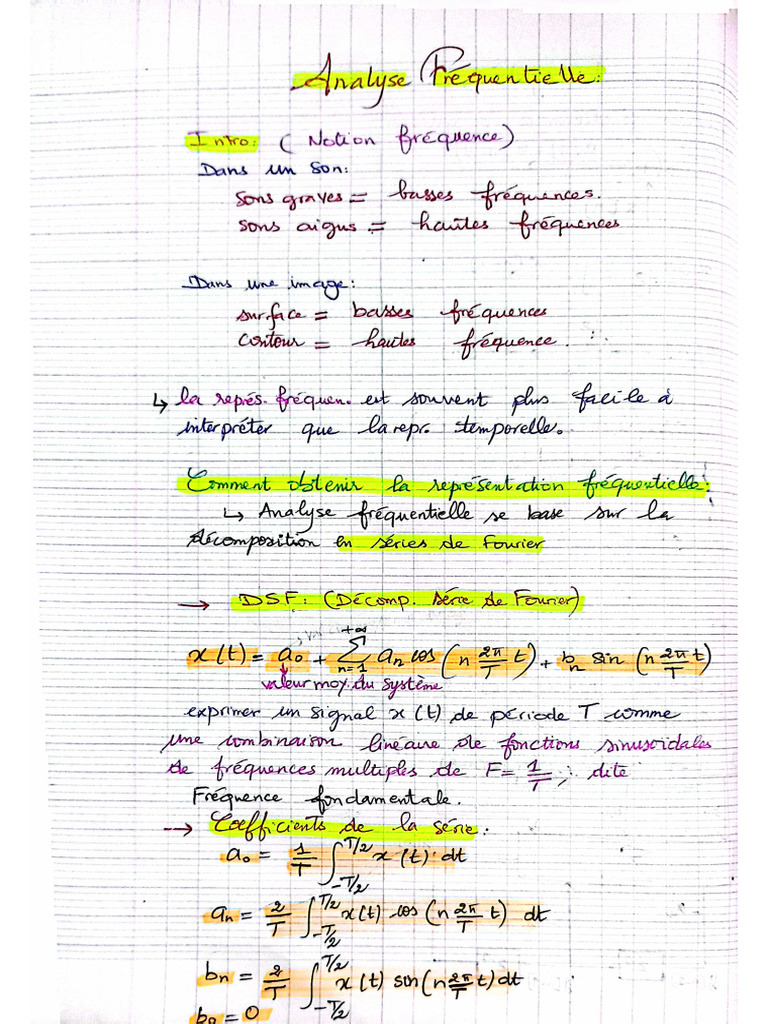 Analyse Fréquentielle:
Intro: ( Notion fréquence)
Dans un son:
sons graves = basses fréquences.
sons aigus = hautes fréquences
Dans une image:
surface = basses fréquences
contour = hautes fréquence.
↳ la représ. fréquen. est souvent plus facile à
interpréter que la repr. temporelle.
Comment obtenir la représentation fréquentielle:
↳ Analyse fréquentielle se base sur la
décomposition en séries de Fourier
→ D.S.F: (Décomp. série de Fourier)
x(t) = a₀ + ∑_{n=1}^{+∞} aₙ cos (n 2π/T t) + bₙ sin (n 2π/T t)
valeur moy. du système
exprimer un signal x(t) de période T comme
une combinaison linéaire de fonctions sinusoidales
de fréquences multiples de F = 1/T ; dite
Fréquence fondamentale.
→ Coefficients de la série:
a₀ = 1/T ∫_{-T/2}^{T/2} x(t) dt
aₙ = 2/T ∫_{-T/2}^{T/2} x(t) cos (n 2π/T t) dt
bₙ = 2/T ∫_{-T/2}^{T/2} x(t) sin (n 2π/T t) dt
b₀ = 0